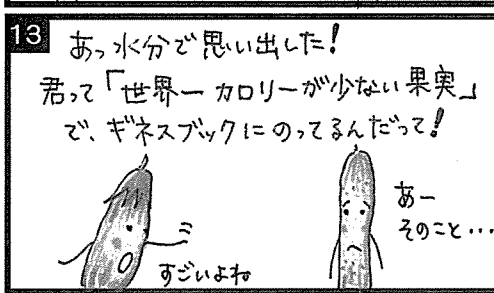 13
あっ水分で思い出した!
君って「世界一カロリーが少ない果実」
で、ギネスブックにのってるんだって!
すごいよね
あー
そのこと…